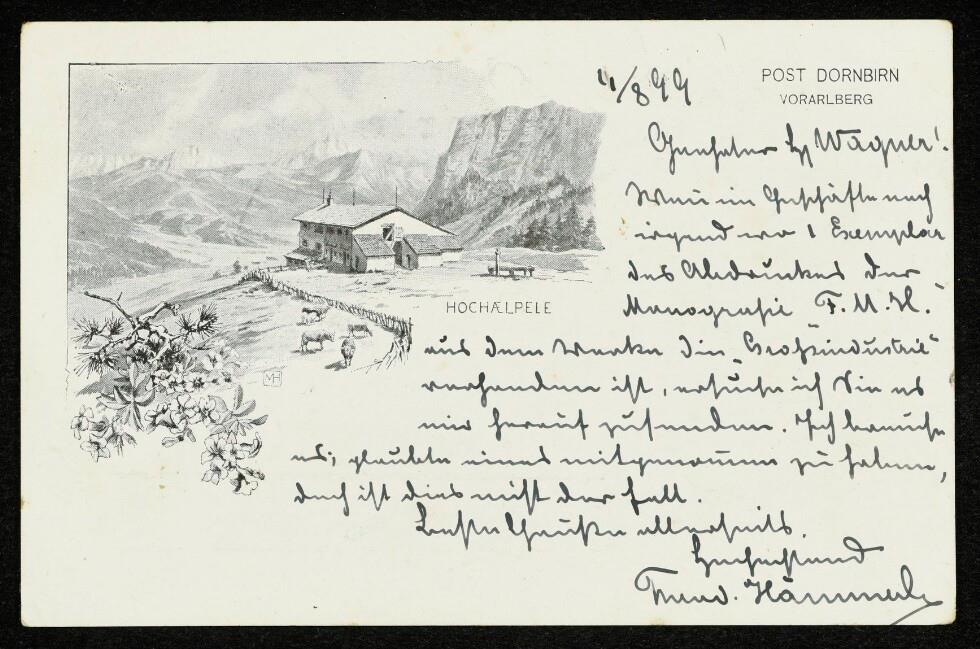 4/8 99
POST DORNBIRN
VORARLBERG
Geehrter Hr Wagner!
Wenn im Geschäfte noch
irgend wo 1 Exemplar
des Abdruckes der
Monografie "F. M. H."
HOCHÆLPELE
aus dem Werke die „Großindustrie"
vorhanden ist, ersuche ich Sie es
mir herauf zusenden. Ich brauche
es; glaubte eines mitgenommen zu haben,
doch ist dies nicht der Fall.
MH
Beste Grüße allerseits.
Hochachtend
Hämmerle